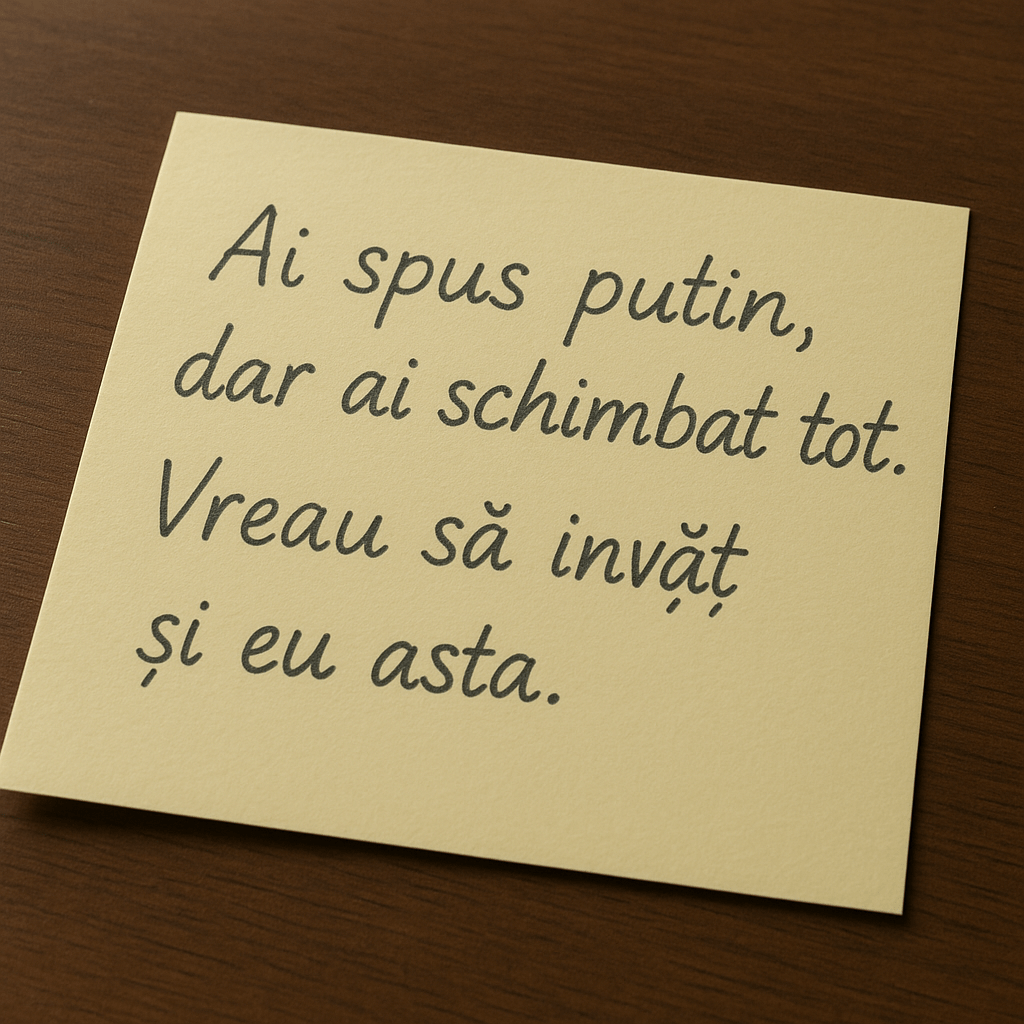 Ai spus putin,
dar ai schimbat tot.
Vreau să invặț
și eu asta.